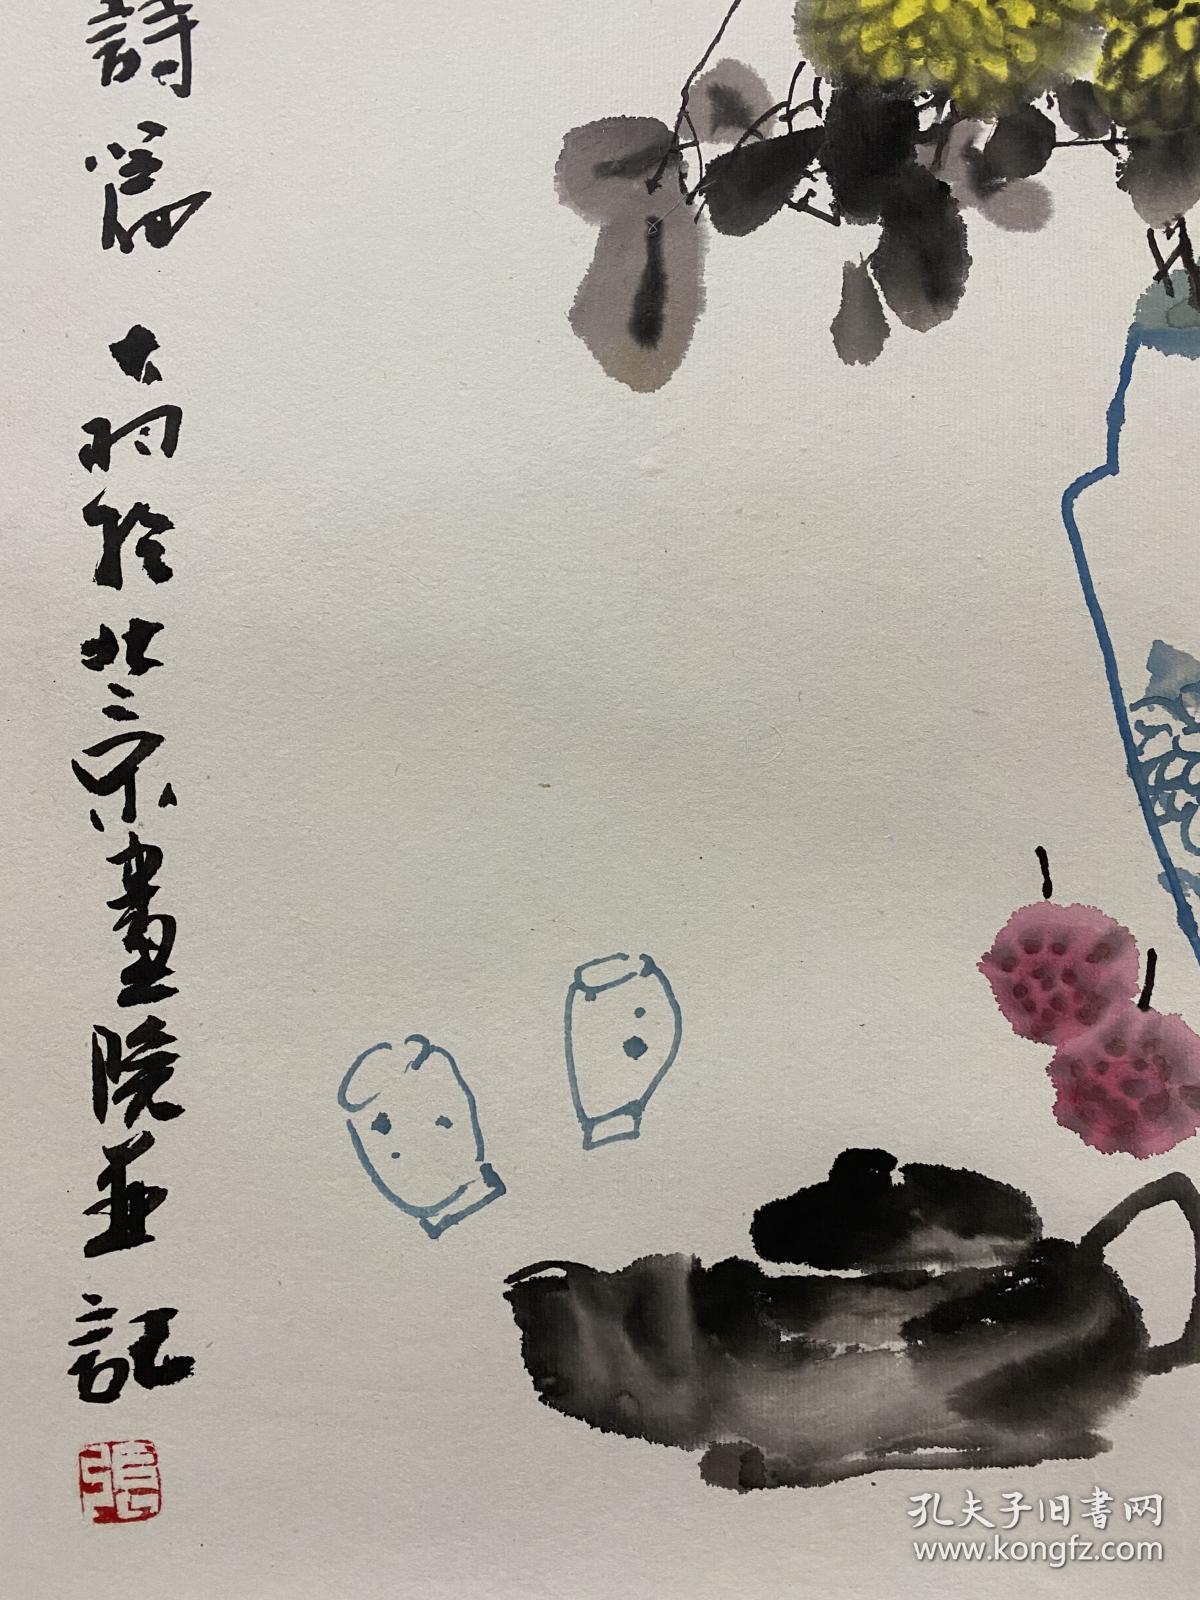 詩意 大羽於北京畫院並記
張
孔夫子旧書网
www.kongfz.com